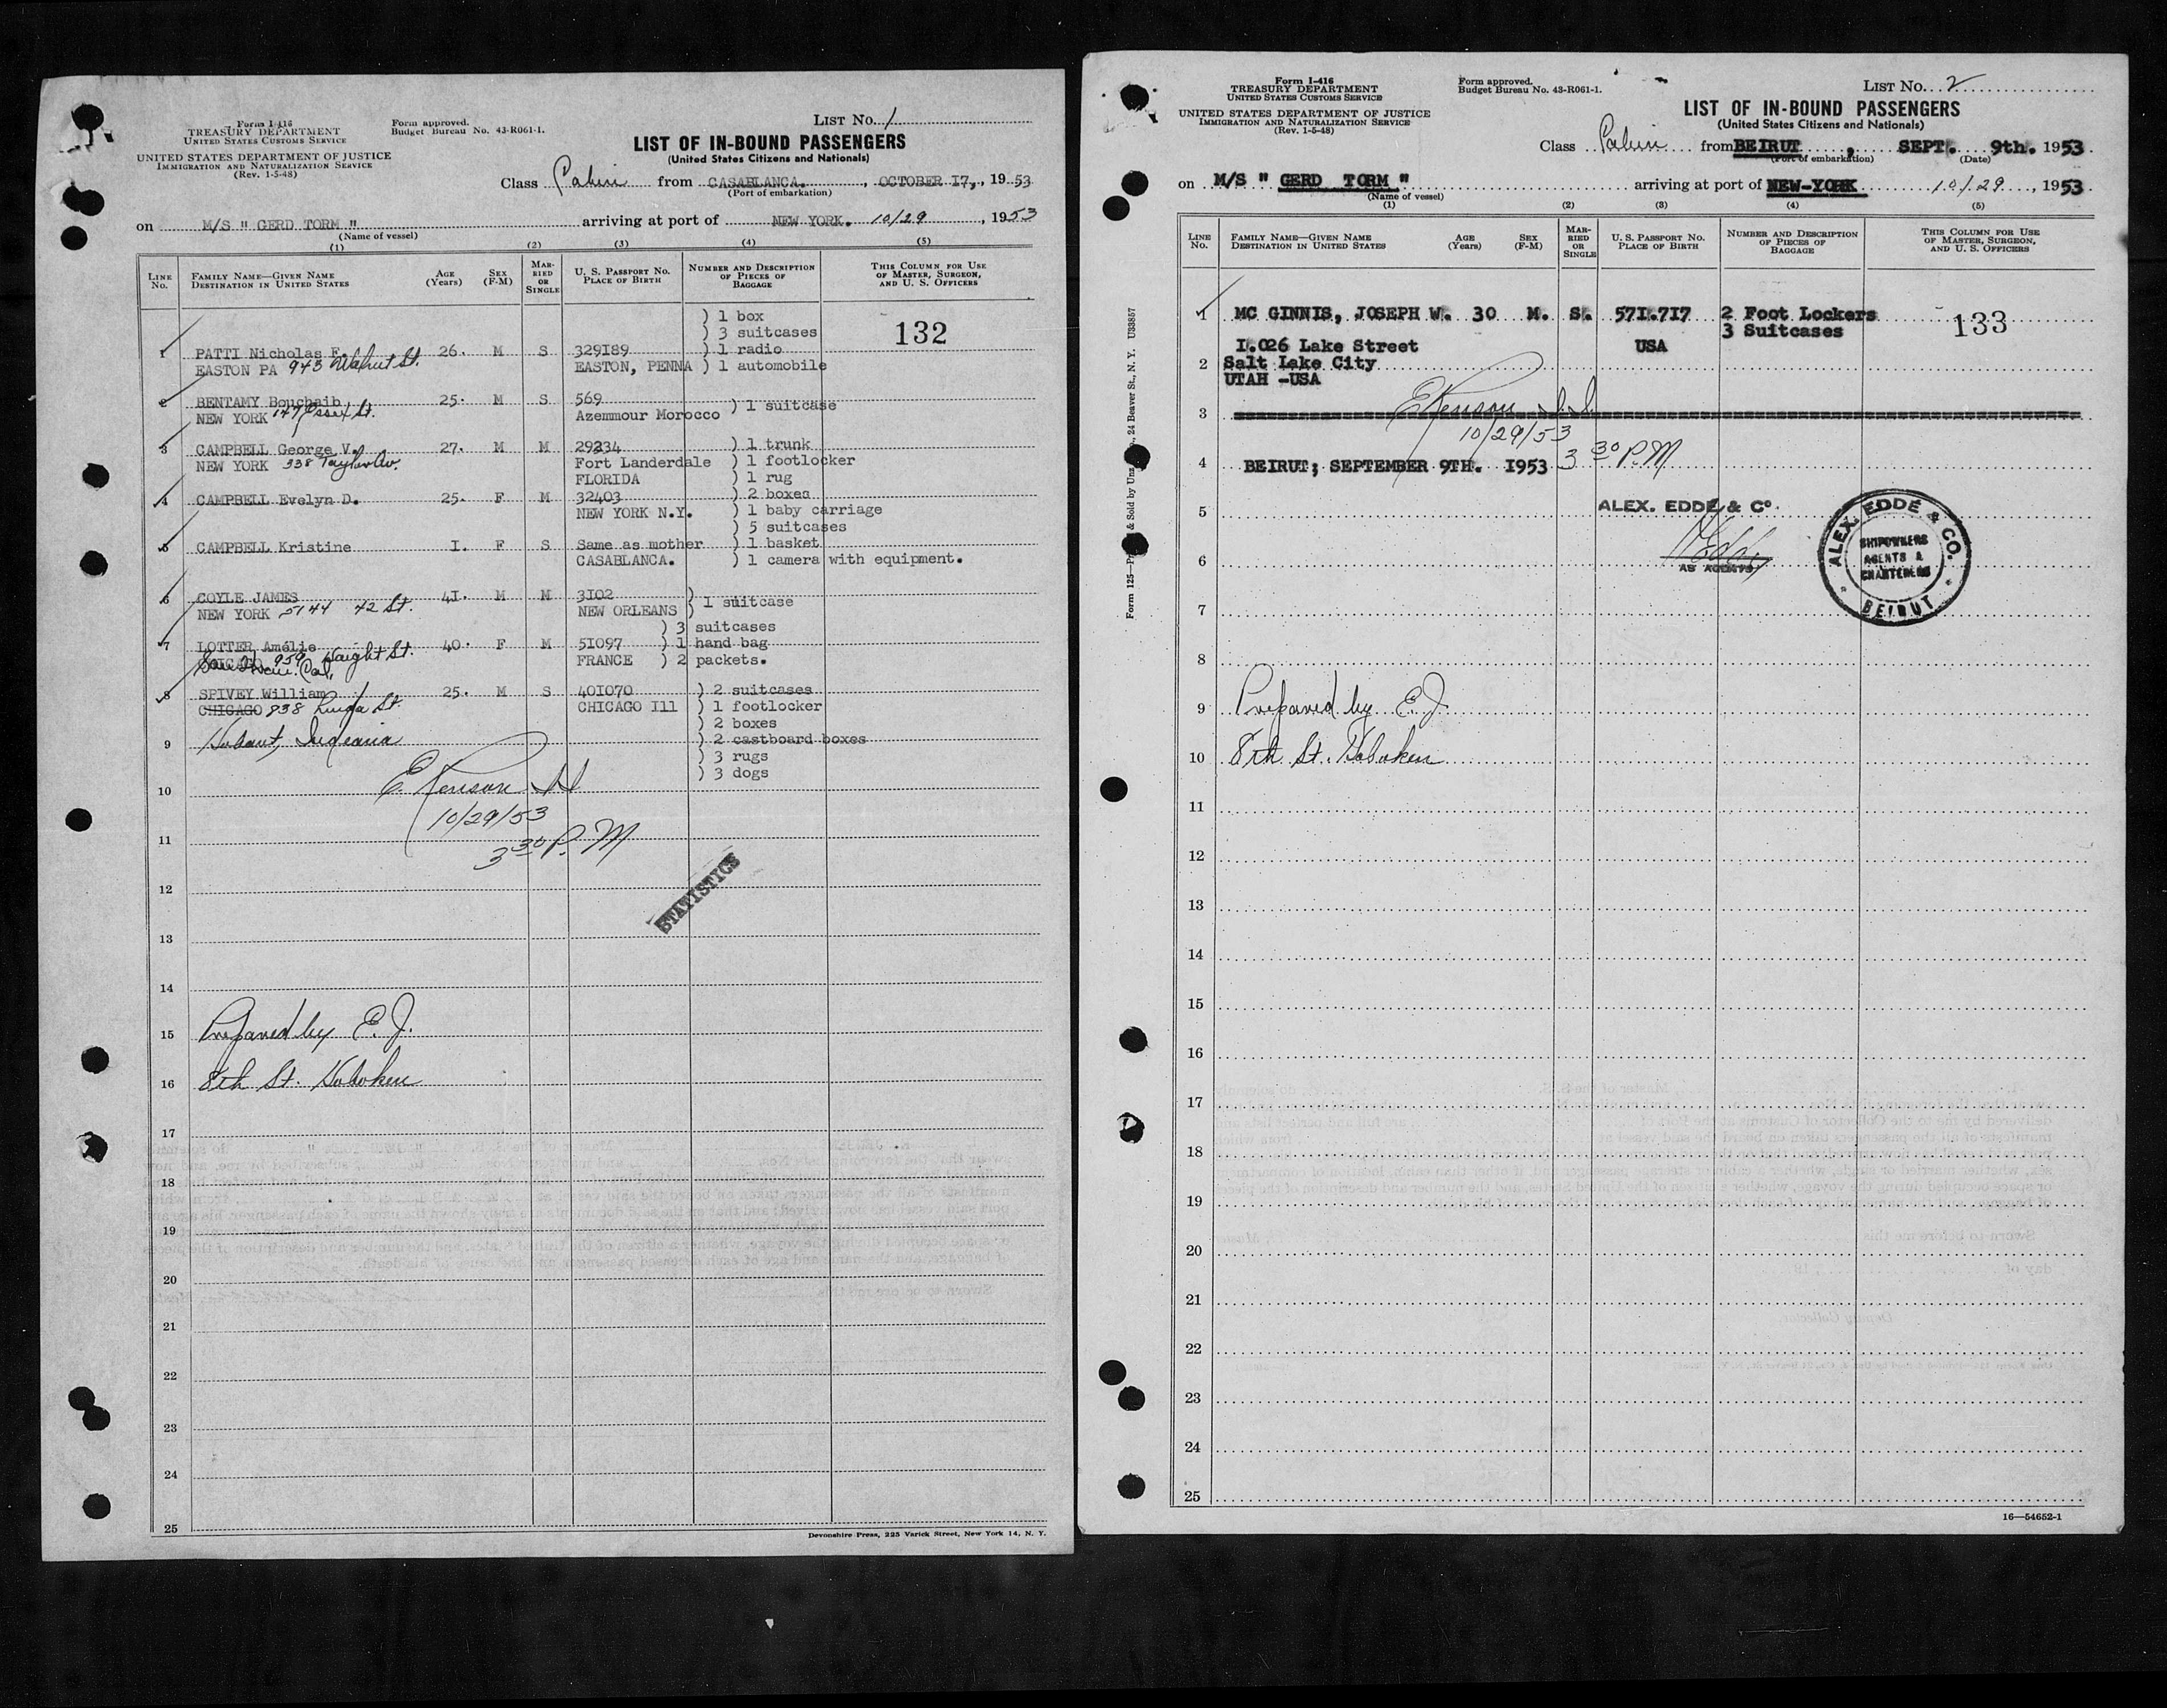 Form I-416
TREASURY DEPARTMENT
UNITED STATES CUSTOMS SERVICE
UNITED STATES DEPARTMENT OF JUSTICE
IMMIGRATION AND NATURALIZATION SERVICE
(Rev. 1-5-48)
Form approved.
Budget Bureau No. 43-R061-1.
LIST No. 1
LIST OF IN-BOUND PASSENGERS
(United States Citizens and Nationals)
Class Cabin from CASABLANCA. , OCTOBER I7, , 1953
(Port of embarkation)
on M/S " GERD TORM " arriving at port of NEW YORK. 10/29 , 1953
(Name of vessel)
(1) (2) (3) (4) (5)
LINE No. FAMILY NAME—GIVEN NAME DESTINATION IN UNITED STATES AGE (Years) SEX (F-M) MARRIED OR SINGLE U. S. PASSPORT No. PLACE OF BIRTH NUMBER AND DESCRIPTION OF PIECES OF BAGGAGE THIS COLUMN FOR USE OF MASTER, SURGEON, AND U. S. OFFICERS
) 1 box
) 3 suitcases 132
1 PATTI Nicholas F. 26. M S 329I89 ) 1 radio
EASTON PA 943 Walnut St. EASTON, PENNA ) 1 automobile
2 BENTAMY Bouchaib 25. M S 569
NEW YORK 147 Essex St. Azemmour Morocco ) 1 suitcase
3 CAMPBELL George V. 27. M M 29234 ) 1 trunk
NEW YORK 338 Taylor Av. Fort Landerdale ) 1 footlocker
FLORIDA ) 1 rug
4 CAMPBELL Evelyn D. 25. F M 32403 ) 2 boxes
NEW YORK N.Y. ) 1 baby carriage
) 5 suitcases
5 CAMPBELL Kristine I. F S Same as mother ) 1 basket
CASABLANCA. ) 1 camera with equipment.
6 COYLE JAMES 4I. M M 3I02 )
NEW YORK 5144 42 St. NEW ORLEANS ) 1 suitcase
) 3 suitcases
7 LOTTER Amélie 40. F M 5I097 ) 1 hand bag
CHICAGO 959 Haight St. FRANCE ) 2 packets.
San Fran. Cal.
8 SPIVEY William 25. M S 40I070 ) 2 suitcases
CHICAGO 838 St. CHICAGO Ill ) 1 footlocker
) 2 boxes
9 Hobart, Indiana ) 2 castboard boxes
) 3 rugs
) 3 dogs
10 E Kenison I.I.
10/29/53
11 3 30 P.M
STATISTICS
12
13
14
15 Prepared by E. J.
16 8th St. Hoboken
17
18
19
20
21
22
23
24
25
Devonshire Press, 225 Varick Street, New York 14, N. Y.
Form I-416
TREASURY DEPARTMENT
UNITED STATES CUSTOMS SERVICE
UNITED STATES DEPARTMENT OF JUSTICE
IMMIGRATION AND NATURALIZATION SERVICE
(Rev. 1-5-48)
Form approved.
Budget Bureau No. 43-R061-1.
LIST No. 2
LIST OF IN-BOUND PASSENGERS
(United States Citizens and Nationals)
Class Cabin from BEIRUT , SEPT. 9th. 1953
(Port of embarkation) (Date)
on M/S " GERD TORM " arriving at port of NEW-YORK 10/29 , 1953
(Name of vessel)
(1) (2) (3) (4) (5)
LINE No. FAMILY NAME—GIVEN NAME DESTINATION IN UNITED STATES AGE (Years) SEX (F-M) MARRIED OR SINGLE U. S. PASSPORT No. PLACE OF BIRTH NUMBER AND DESCRIPTION OF PIECES OF BAGGAGE THIS COLUMN FOR USE OF MASTER, SURGEON, AND U. S. OFFICERS
1 MC GINNIS, JOSEPH W. 30 M. S. 57I.7I7 2 Foot Lockers 133
3 Suitcases
I.026 Lake Street USA
2 Salt Lake City
UTAH -USA
3 E Kenison I.I.
10/29/53
4 BEIRUT; SEPTEMBER 9TH. I953 3 30 P.M
5 ALEX. EDDÉ & Co.
6 AS AGENTS
ALEX. EDDÉ & CO.
SHIPOWNERS
AGENTS &
CHARTERERS
* BEIRUT *
7
8
9 Prepared by E. J.
10 8th St. Hoboken
11
12
13
14
15
16
17
18
19
20
21
22
23
24
25
16—54652-1